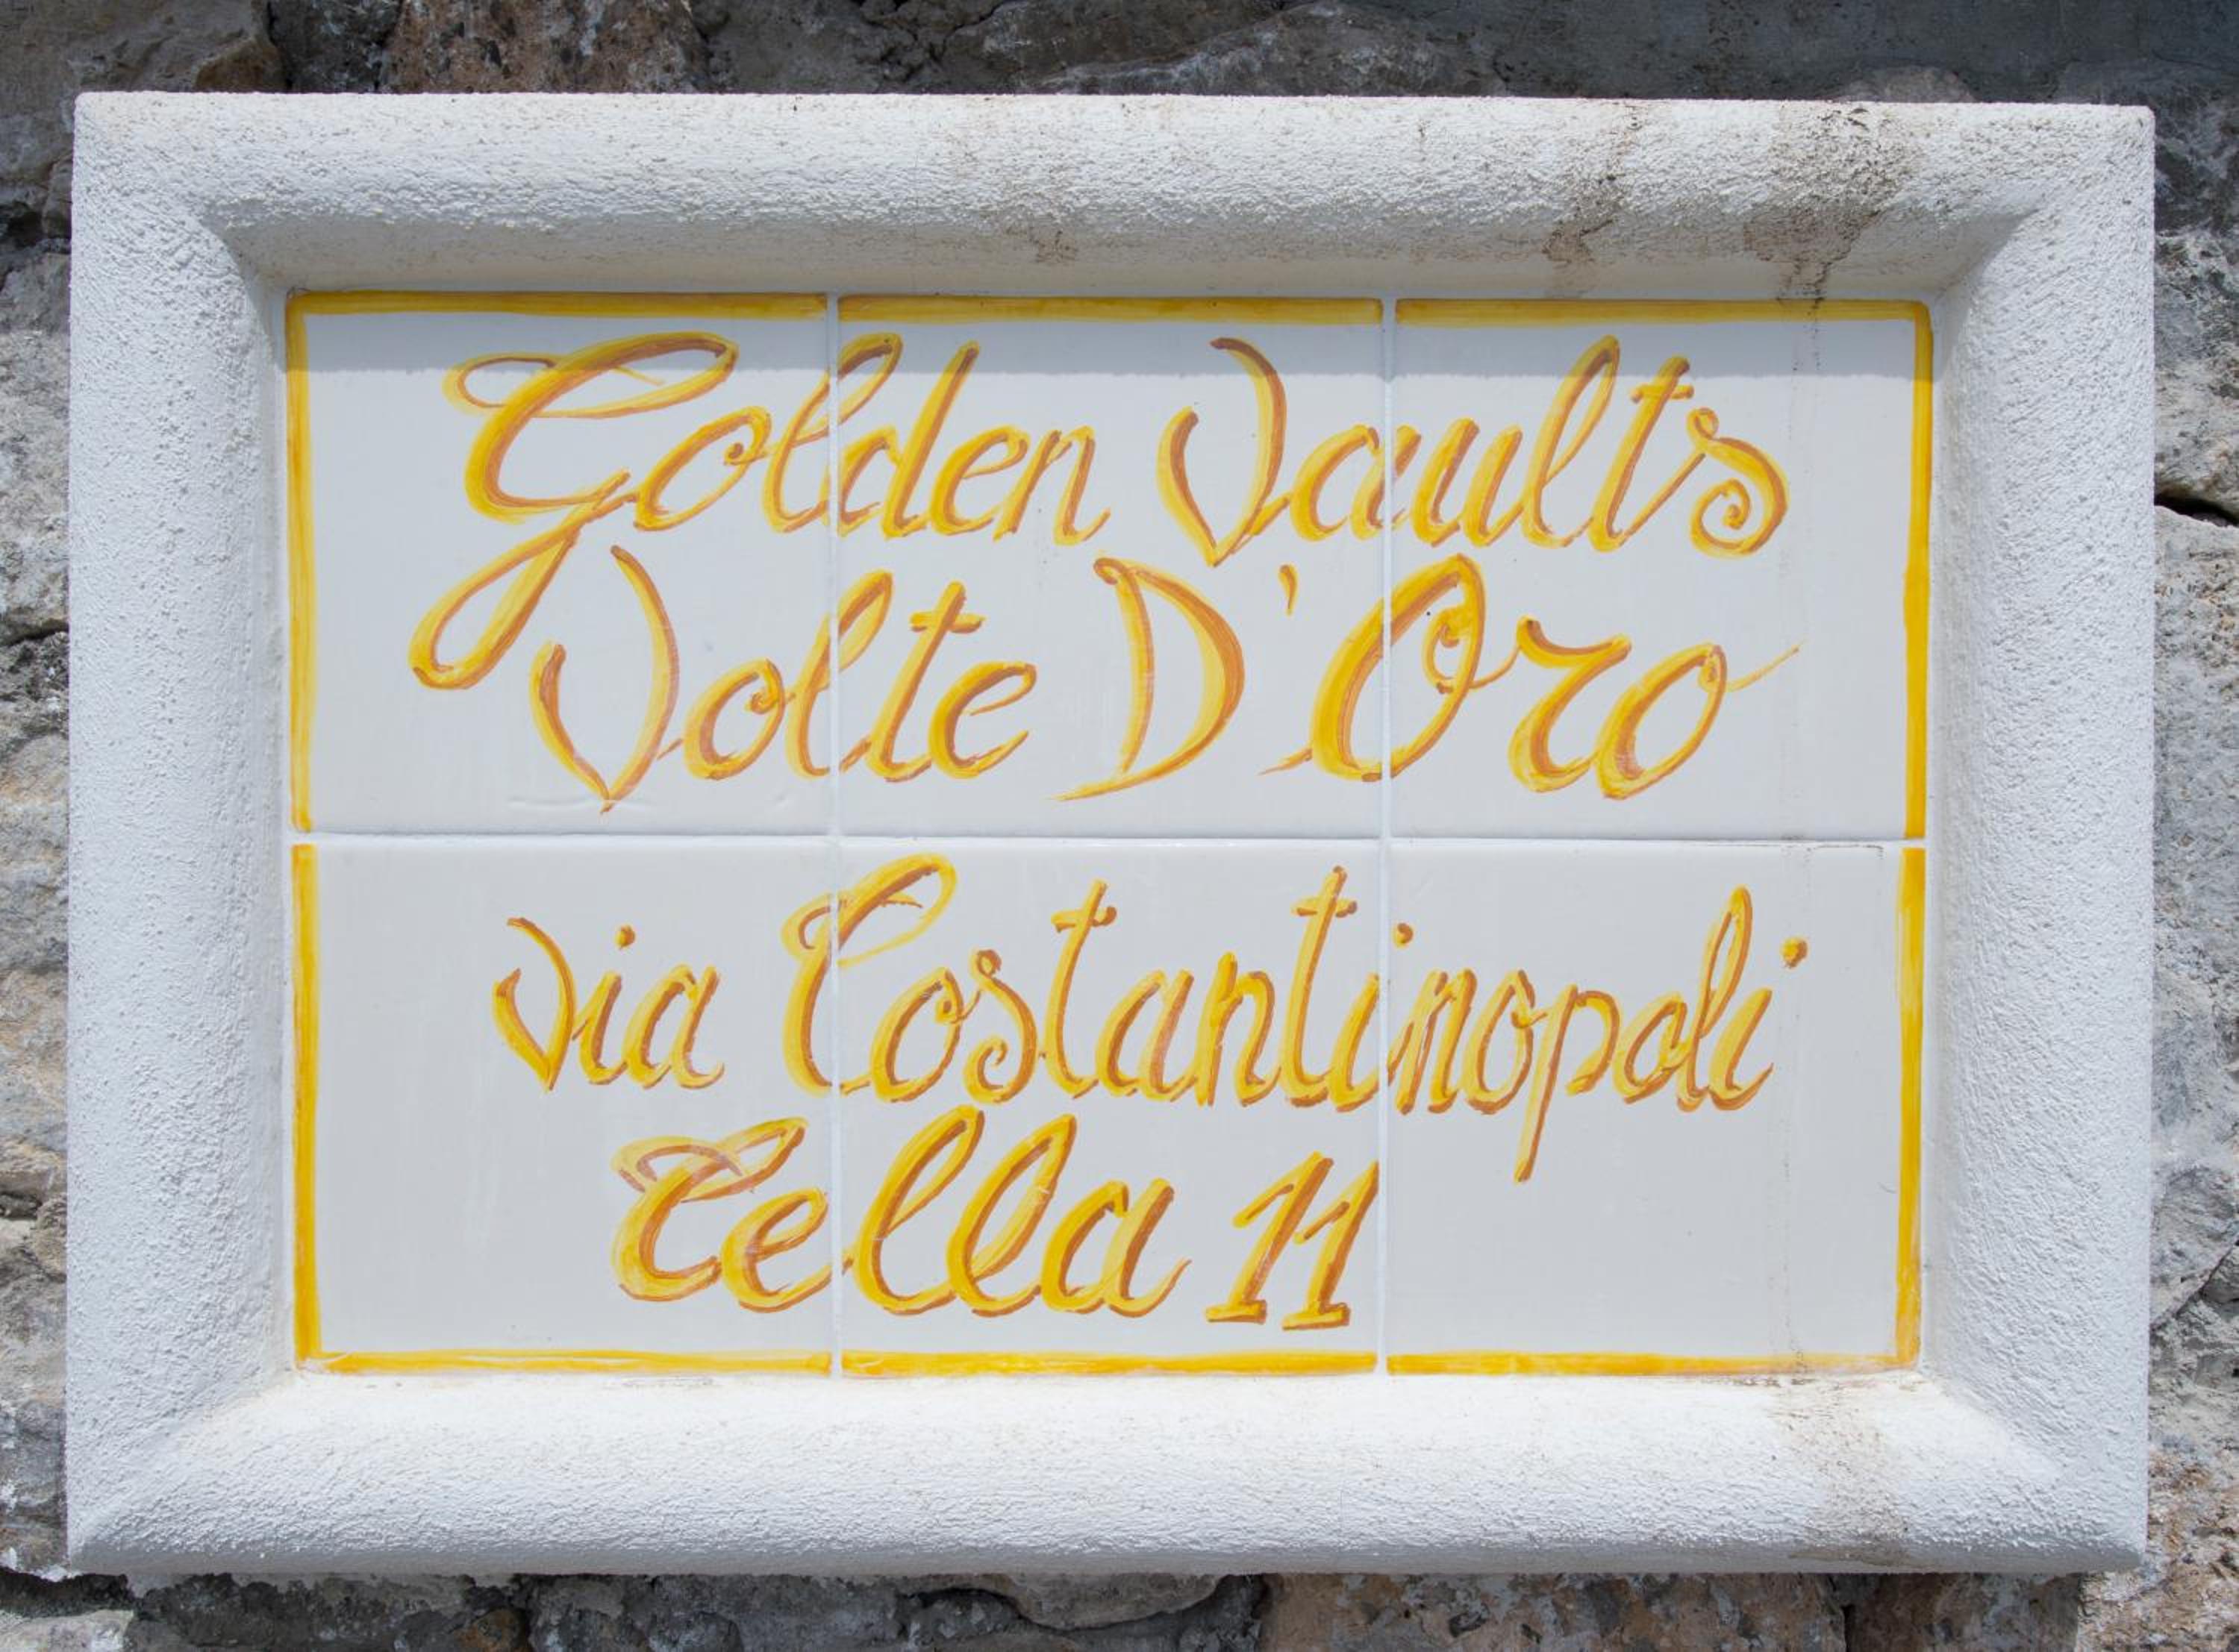 Golden Vaults
Volte D'Oro
via Costantinopoli
Cella 11